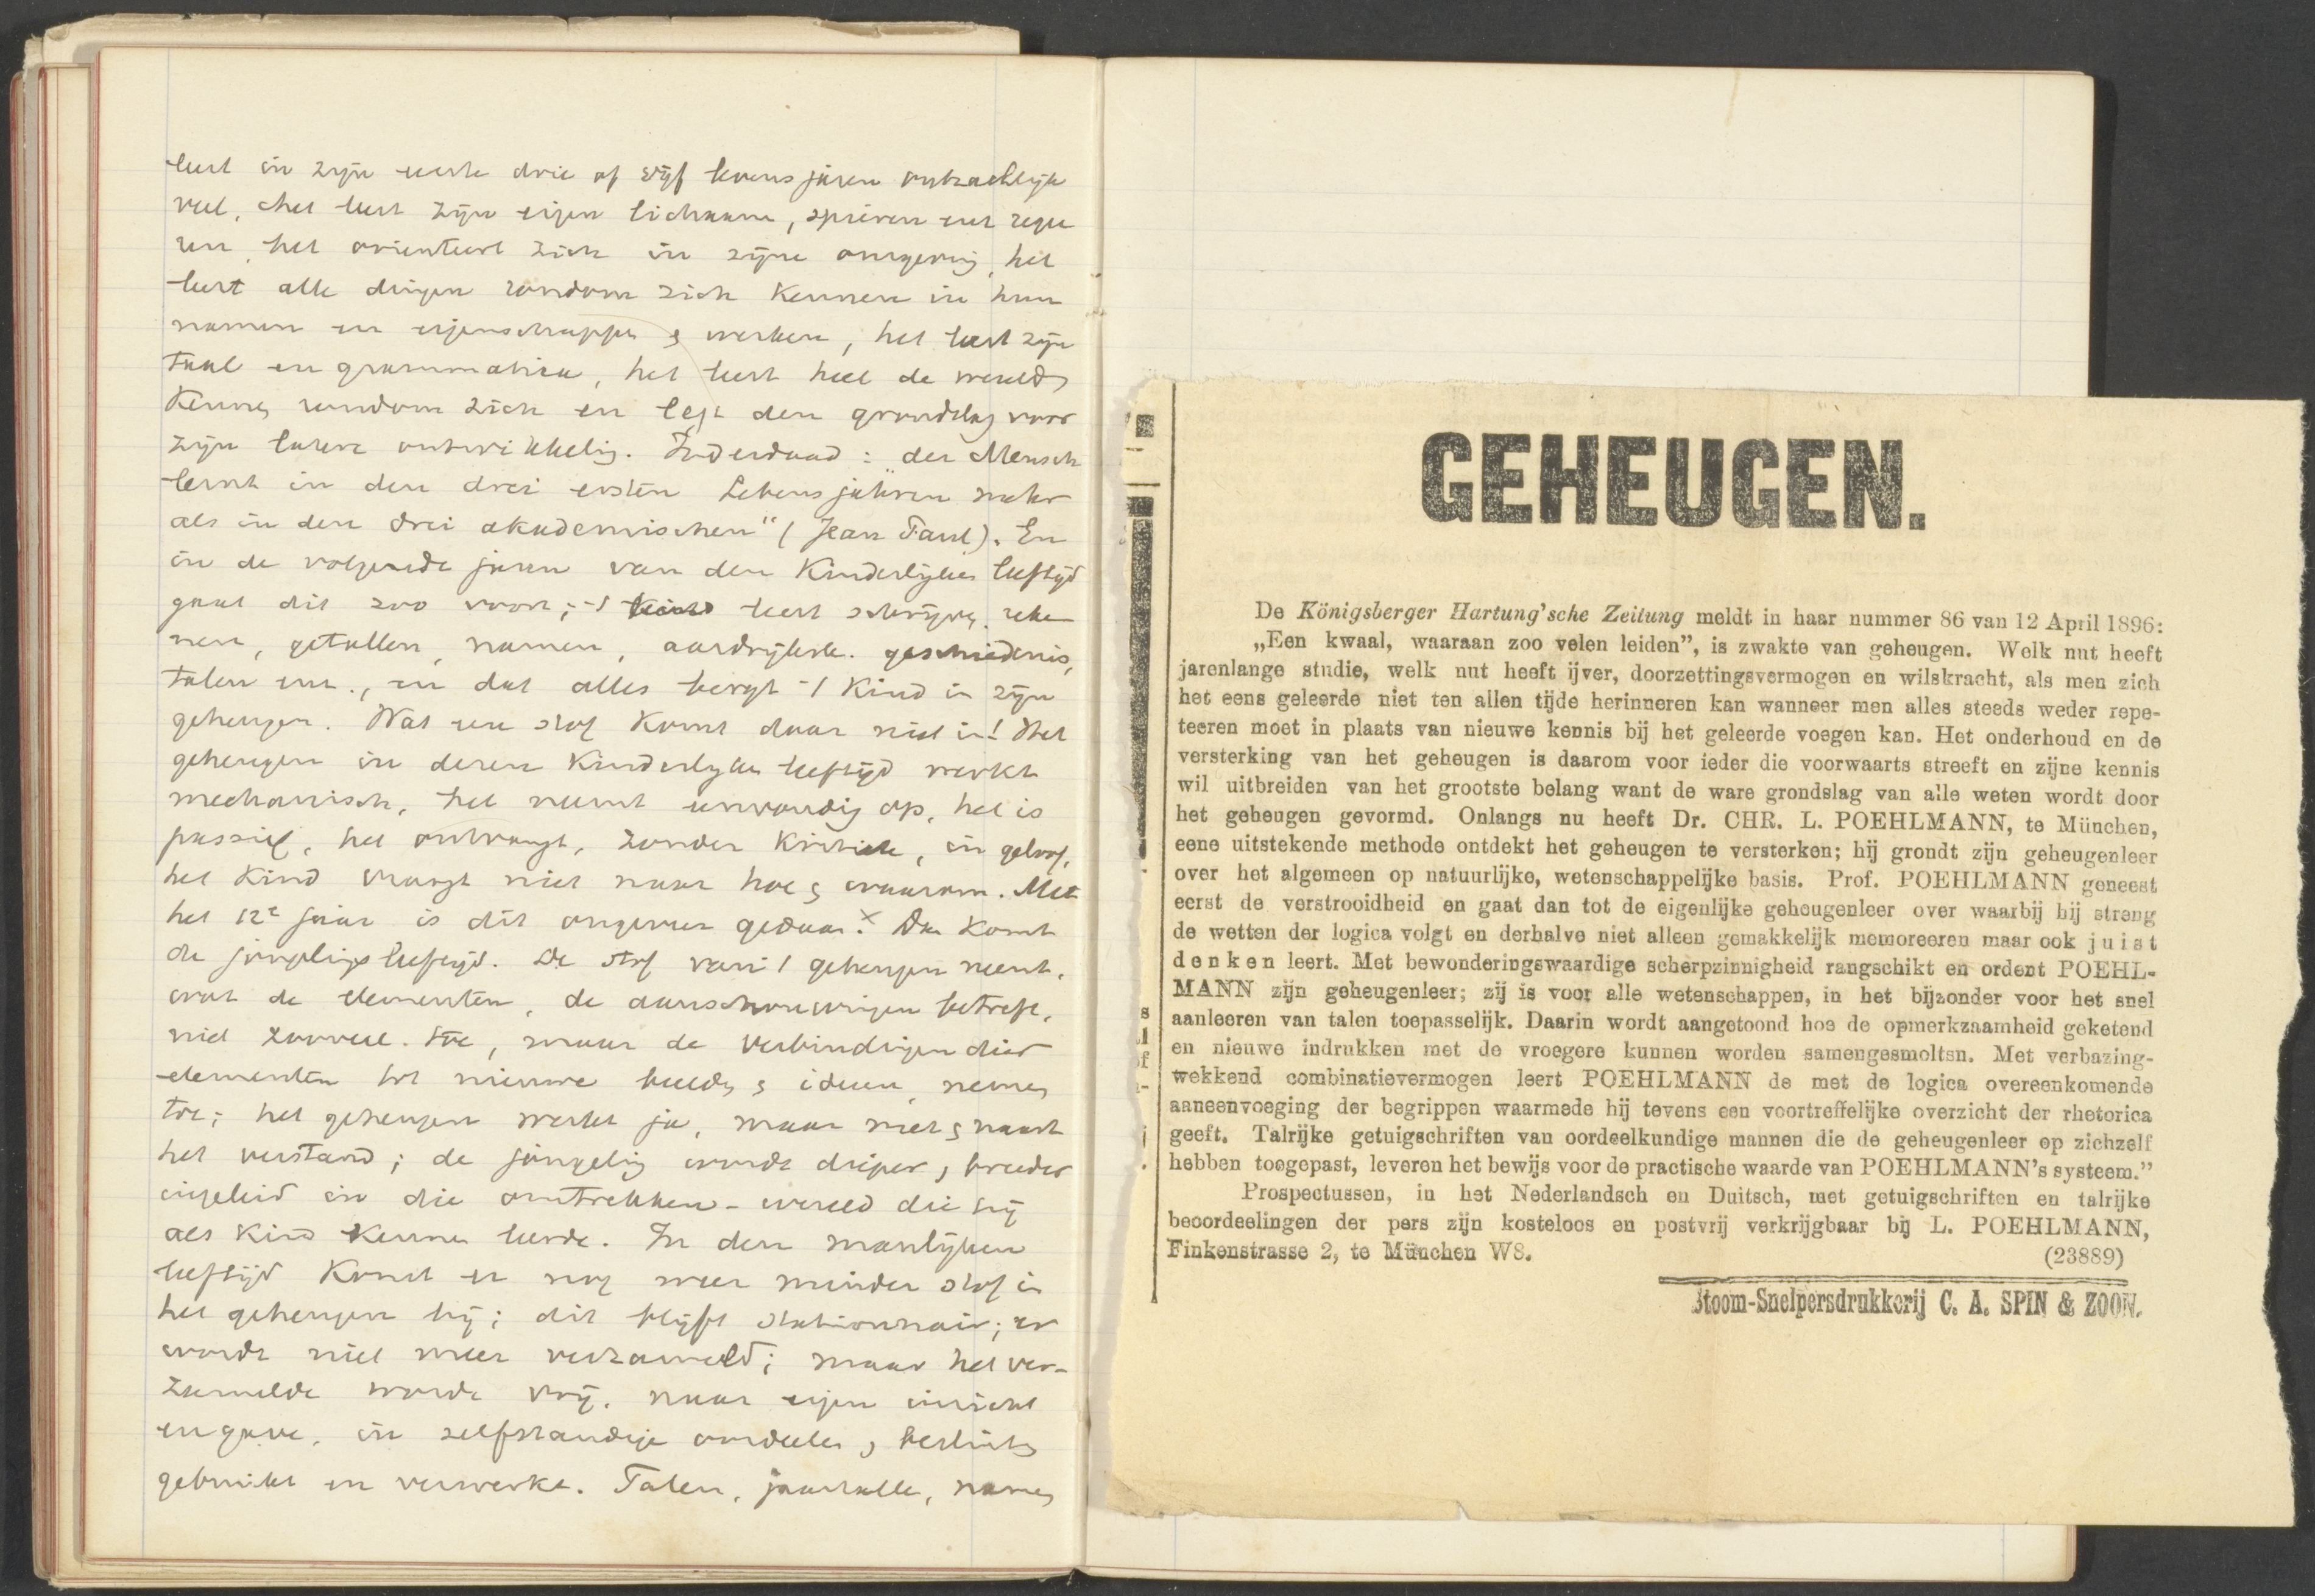 leert in zijn eerste drie of vijf levensjaren ontzachlijk
veel, het leert zijn eigen lichaam, spieren enz. rege
ren, het orienteert zich in zijne omgeving, het
leert alle dingen rondom zich kennen in hun
namen en eigenschappen & werken, het leert zijn
taal en grammatica, het leert heel de wereld
kennen rondom zich en legt den grondslag voor
zijn latere ontwikkeling. Inderdaad: „der Mensch
lernt in den drei ersten Lebensjahren mehr
als in den drei akademischen" (Jean Paul). En
in de volgende jaren van den kinderlijken leeftijd
gaat dit zoo voort; 't kind leert schrijven, reke
nen, getallen, namen, aardrijksk. geschiedenis,
talen enz., en dat alles bergt 't kind in zijn
geheugen. Wat een stof komt daar niet in! Het
geheugen in dezen kinderlijken leeftijd werkt
mechanisch, het neemt eenvoudig op, het is
passief, het ontvangt, zonder kritiek, in geloof,
het kind vraagt niet naar hoe & waarom. Met
het 12e jaar is dit ongeveer gedaan. x Dan komt
de jongelingsleeftijd. De stof van 't geheugen neemt,
wat de elementen, de aanschouwingen betreft,
niet zooveel toe, maar de verbindingen dier
elementen tot nieuwe beelden & ideeen nemen
toe; het geheugen werkt ja, maar met & naast
het verstand; de jongeling wordt dieper & breeder
ingeleid in die omtrekken-wereld die hij
als kind kennen leerde. In den manlijken
leeftijd komt er nog weer minder stof in
het geheugen bij; dit blijft stationnair; er
wordt niet meer verzameld; maar het ver-
zamelde wordt vrij, naar eigen inzicht
en gave, in zelfstandige oordeelen & besluiten
gebruikt en verwerkt. Talen, jaartallen, namen
GEHEUGEN.
De Königsberger Hartung'sche Zeitung meldt in haar nummer 86 van 12 April 1896:
„Een kwaal, waaraan zoo velen leiden”, is zwakte van geheugen. Welk nut heeft
jarenlange studie, welk nut heeft ijver, doorzettingsvermogen en wilskracht, als men zich
het eens geleerde niet ten allen tijde herinneren kan wanneer men alles steeds weder repe-
teeren moet in plaats van nieuwe kennis bij het geleerde voegen kan. Het onderhoud en de
versterking van het geheugen is daarom voor ieder die voorwaarts streeft en zijne kennis
wil uitbreiden van het grootste belang want de ware grondslag van alle weten wordt door
het geheugen gevormd. Onlangs nu heeft Dr. CHR. L. POEHLMANN, te München,
eene uitstekende methode ontdekt het geheugen te versterken; hij grondt zijn geheugenleer
over het algemeen op natuurlijke, wetenschappelijke basis. Prof. POEHLMANN geneest
eerst de verstrooidheid en gaat dan tot de eigenlijke geheugenleer over waarbij hij streng
de wetten der logica volgt en derhalve niet alleen gemakkelijk memoreeren maar ook juist
denken leert. Met bewonderingswaardige scherpzinnigheid rangschikt en ordent POEHL-
MANN zijn geheugenleer; zij is voor alle wetenschappen, in het bijzonder voor het snel
aanleeren van talen toepasselijk. Daarin wordt aangetoond hoe de opmerkzaamheid geketend
en nieuwe indrukken met de vroegere kunnen worden samengesmolten. Met verbazing-
wekkend combinatievermogen leert POEHLMANN de met de logica overeenkomende
aaneenvoeging der begrippen waarmede hij tevens een voortreffelijke overzicht der rhetorica
geeft. Talrijke getuigschriften van oordeelkundige mannen die de geheugenleer op zichzelf
hebben toegepast, leveren het bewijs voor de practische waarde van POEHLMANN's systeem.”
Prospectussen, in het Nederlandsch en Duitsch, met getuigschriften en talrijke
beoordeelingen der pers zijn kosteloos en postvrij verkrijgbaar bij L. POEHLMANN,
Finkenstrasse 2, te München W8. (23889)
Stoom-Snelpersdrukkerij C. A. SPIN & ZOON.